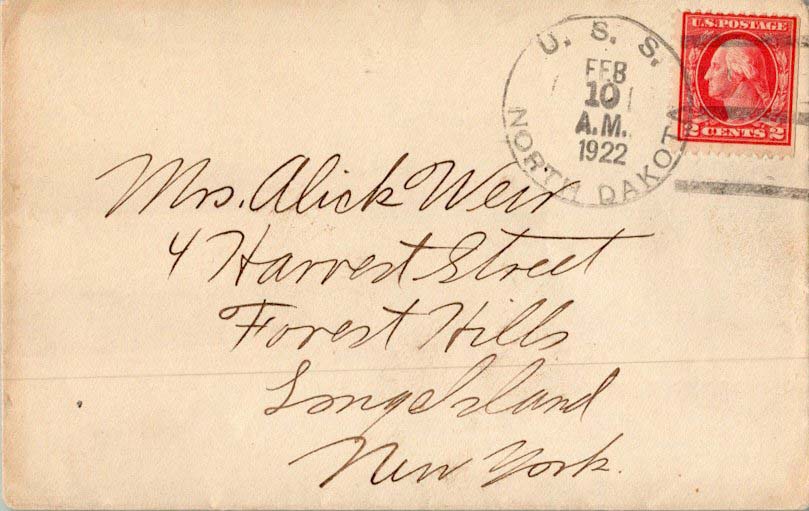 U. S. S.
FEB
10
A.M.
1922
NORTH DAKOTA
U.S. POSTAGE
2 CENTS 2
Mrs. Alick Weir
4 Harvest Street
Forest Hills
Long Island
New York.